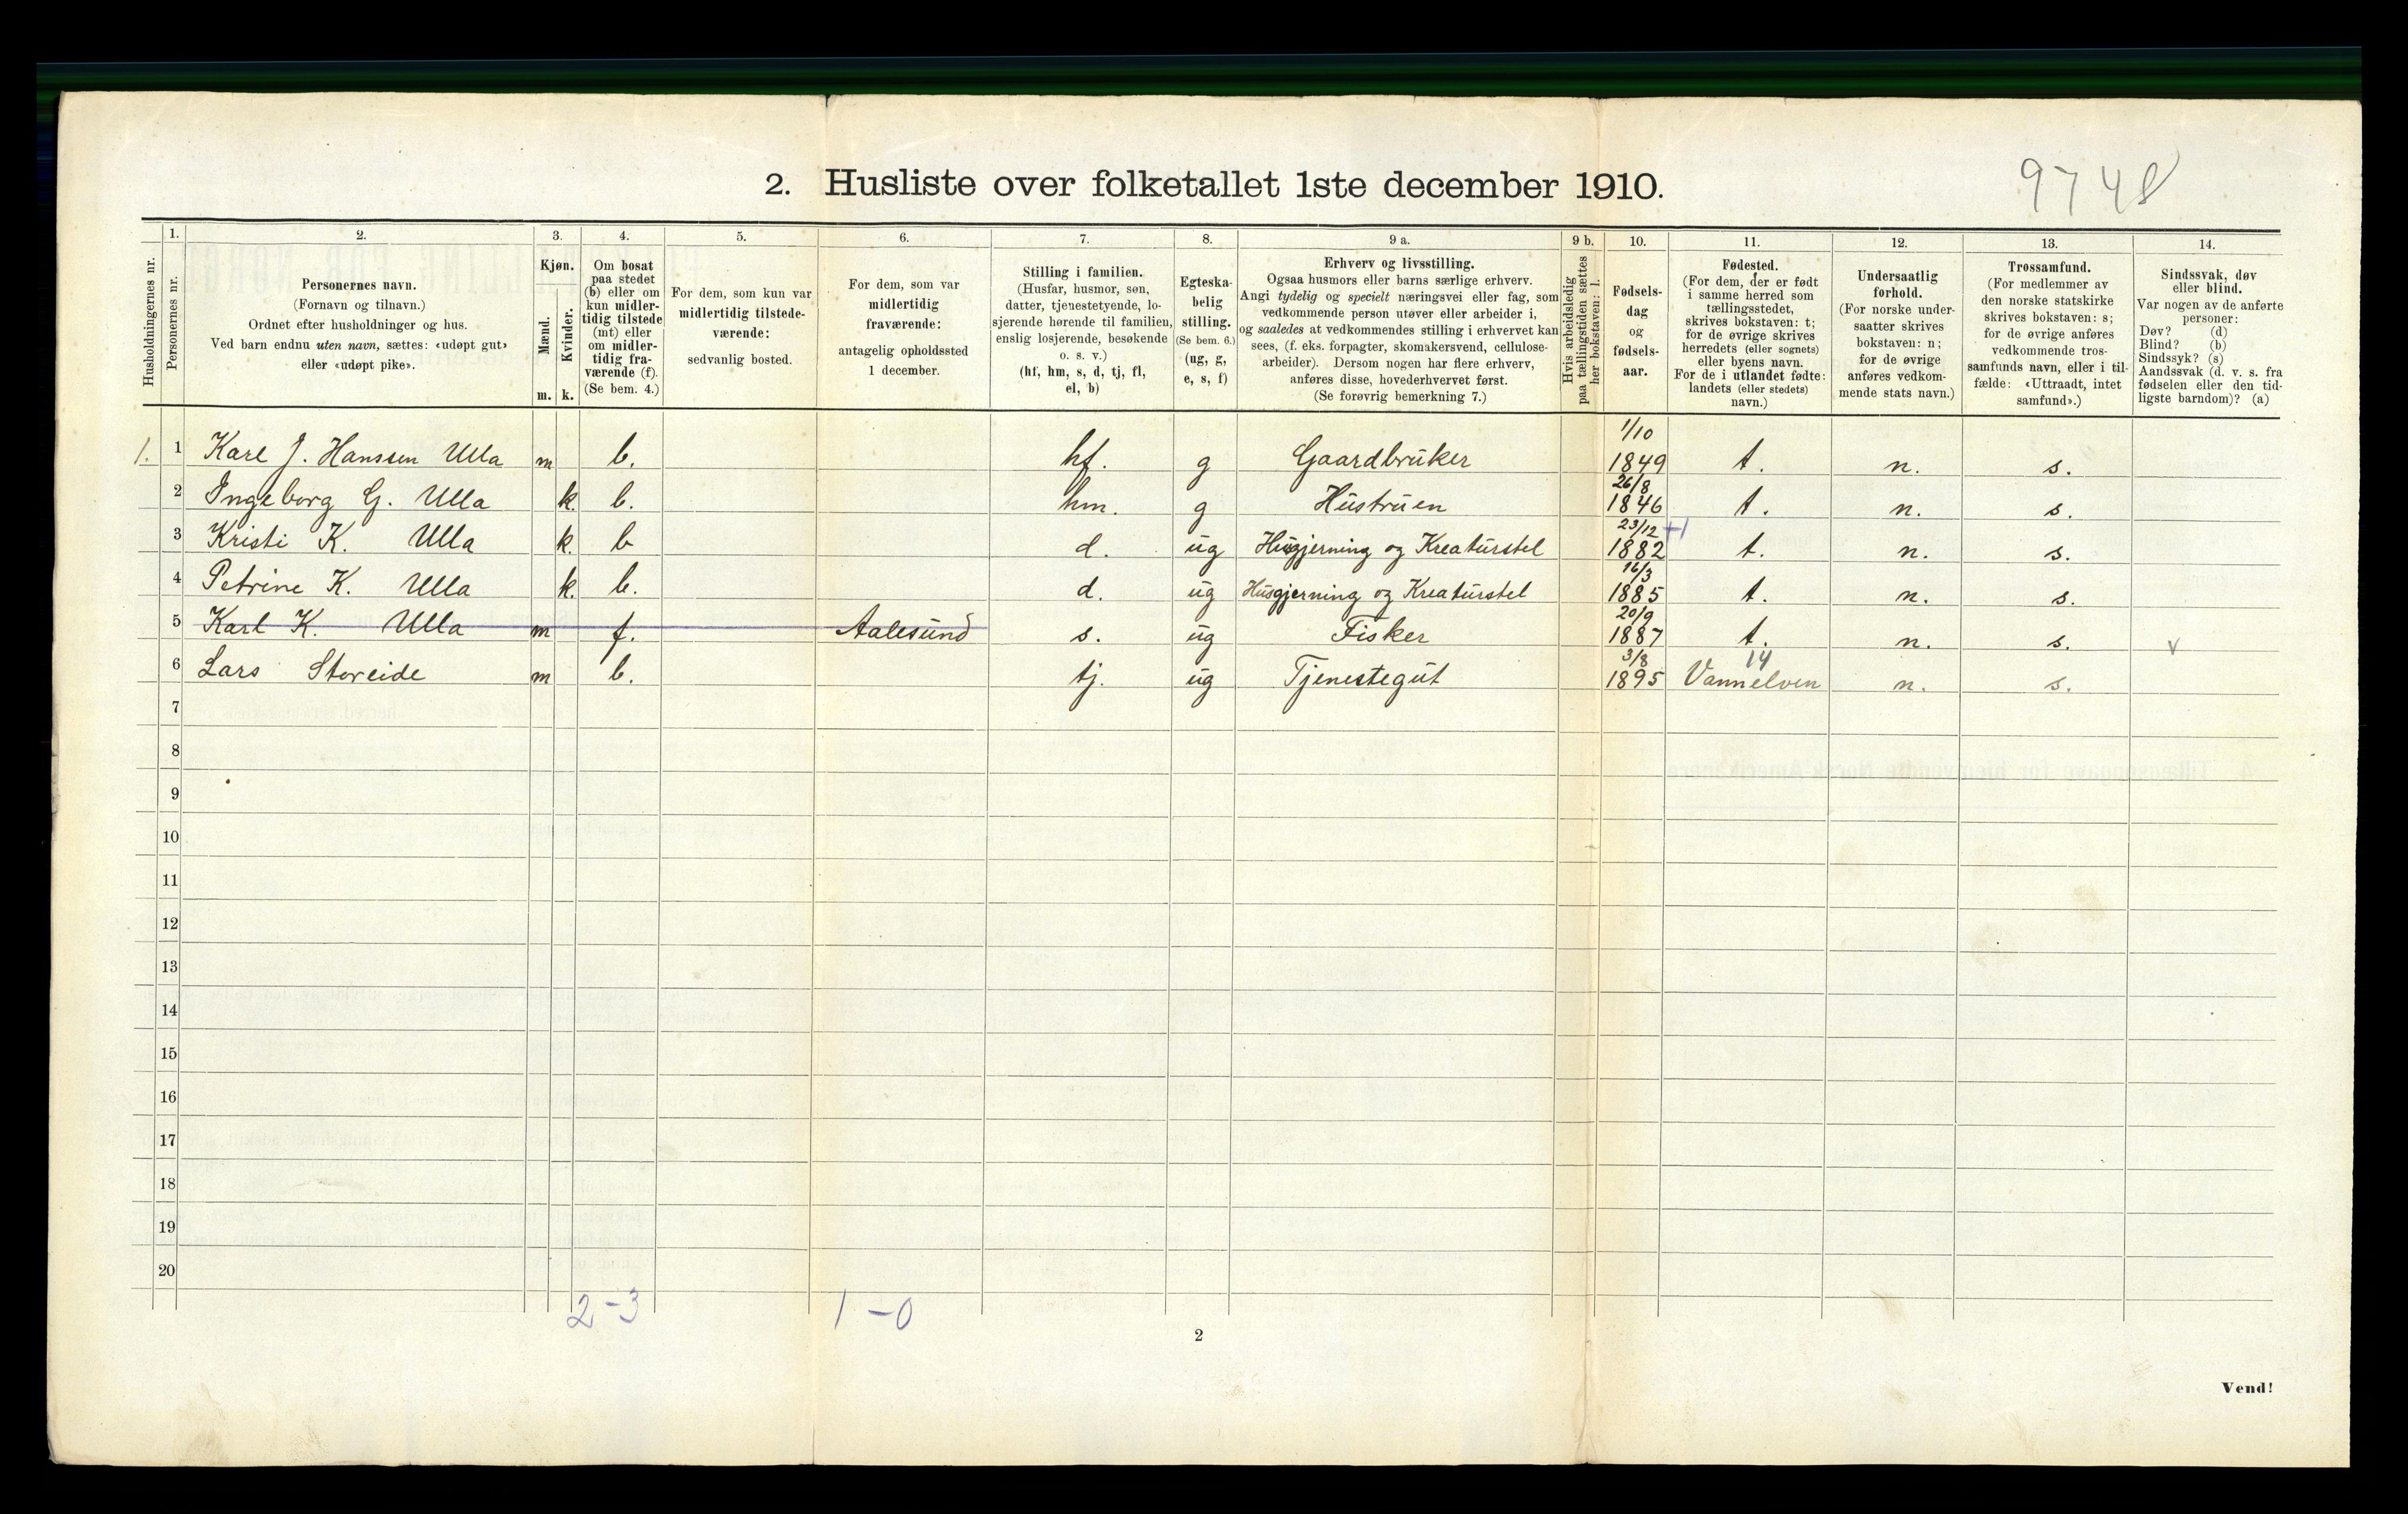 9748
2. Husliste over folketallet 1ste december 1910.
Husholdningernes nr.
1.
Personernes nr.
2.
Personernes navn.
(Fornavn og tilnavn.)
Ordnet efter husholdninger og hus.
Ved barn endnu uten navn, sættes: «udøpt gut»
eller «udøpt pike».
3.
Kjøn.
Mænd.
Kvinder.
m. k.
4.
Om bosat
paa stedet
(b) eller om
kun midler-
tidig tilstede
(mt) eller
om midler-
tidig fra-
værende (f).
(Se bem. 4.)
5.
For dem, som kun var
midlertidig tilstede-
værende:
sedvanlig bosted.
6.
For dem, som var
midlertidig
fraværende:
antagelig opholdssted
1 december.
7.
Stilling i familien.
(Husfar, husmor, søn,
datter, tjenestetyende, lo-
sjerende hørende til familien,
enslig losjerende, besøkende
o. s. v.)
(hf, hm, s, d, tj, fl,
el, b)
8.
Egteska-
belig
stilling.
(Se bem. 6.)
(ug, g,
e, s, f)
9 a.
Erhverv og livsstilling.
Ogsaa husmors eller barns særlige erhverv.
Angi tydelig og specielt næringsvei eller fag, som
vedkommende person utøver eller arbeider i,
og saaledes at vedkommendes stilling i erhvervet kan
sees, (f. eks. forpagter, skomakersvend, cellulose-
arbeider). Dersom nogen har flere erhverv,
anføres disse, hovederhvervet først.
(Se forøvrig bemerkning 7.)
9 b.
Hvis arbeidsledig
paa tællingstiden sættes
her bokstaven: l.
10.
Fødsels-
dag
og
fødsels-
aar.
11.
Fødested.
(For dem, der er født
i samme herred som
tællingsstedet,
skrives bokstaven: t;
for de øvrige skrives
herredets (eller sognets)
eller byens navn.
For de i utlandet fødte:
landets (eller stedets)
navn.)
12.
Undersaatlig
forhold.
(For norske under-
saatter skrives
bokstaven: n;
for de øvrige
anføres vedkom-
mende stats navn.)
13.
Trossamfund.
(For medlemmer av
den norske statskirke
skrives bokstaven: s;
for de øvrige anføres
vedkommende tros-
samfunds navn, eller i til-
fælde: «Uttraadt, intet
samfund».)
14.
Sindssvak, døv
eller blind.
Var nogen av de anførte
personer:
Døv? (d)
Blind? (b)
Sindssyk? (s)
Aandssvak (d. v. s. fra
fødselen eller den tid-
ligste barndom)? (a)
1. 1 Karl J. Hanssen Ulla m b. hf. g Gaardbruker 1/10 1849 t. n. s.
2 Ingeborg G. Ulla k. b. hm. g Hustruen 26/8 1846 t. n. s.
3 Kristi K. Ulla k. b d. ug Husgjerning og Kreaturstel 23/12 1882 +1 t. n. s.
4 Petrine K. Ulla k. b. d. ug Husgjerning og Kreaturstel 16/3 1885 t. n. s.
5 Karl K. Ulla m f. Aalesund s. ug Fisker 20/9 1887 t. n. s. v
6 Lars Storeide m b. tj. ug Tjenestegut 3/8 1895 14 Vannelven n. s.
7
8
9
10
11
12
13
14
15
16
17
18
19
20
2-3 1-0
2
Vend!